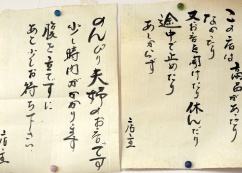 この店は
なかったり
又お店を開けたり休んだり
途中で止めたり
あしからず
のんびり夫婦のお店です
少し時間がかかります
腹を立てずに
あとぞとお待ち下さい
店主
店主